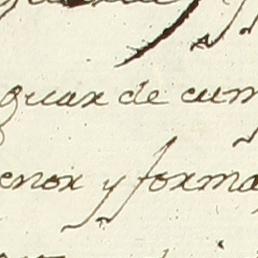 guar de cum
enor y forma